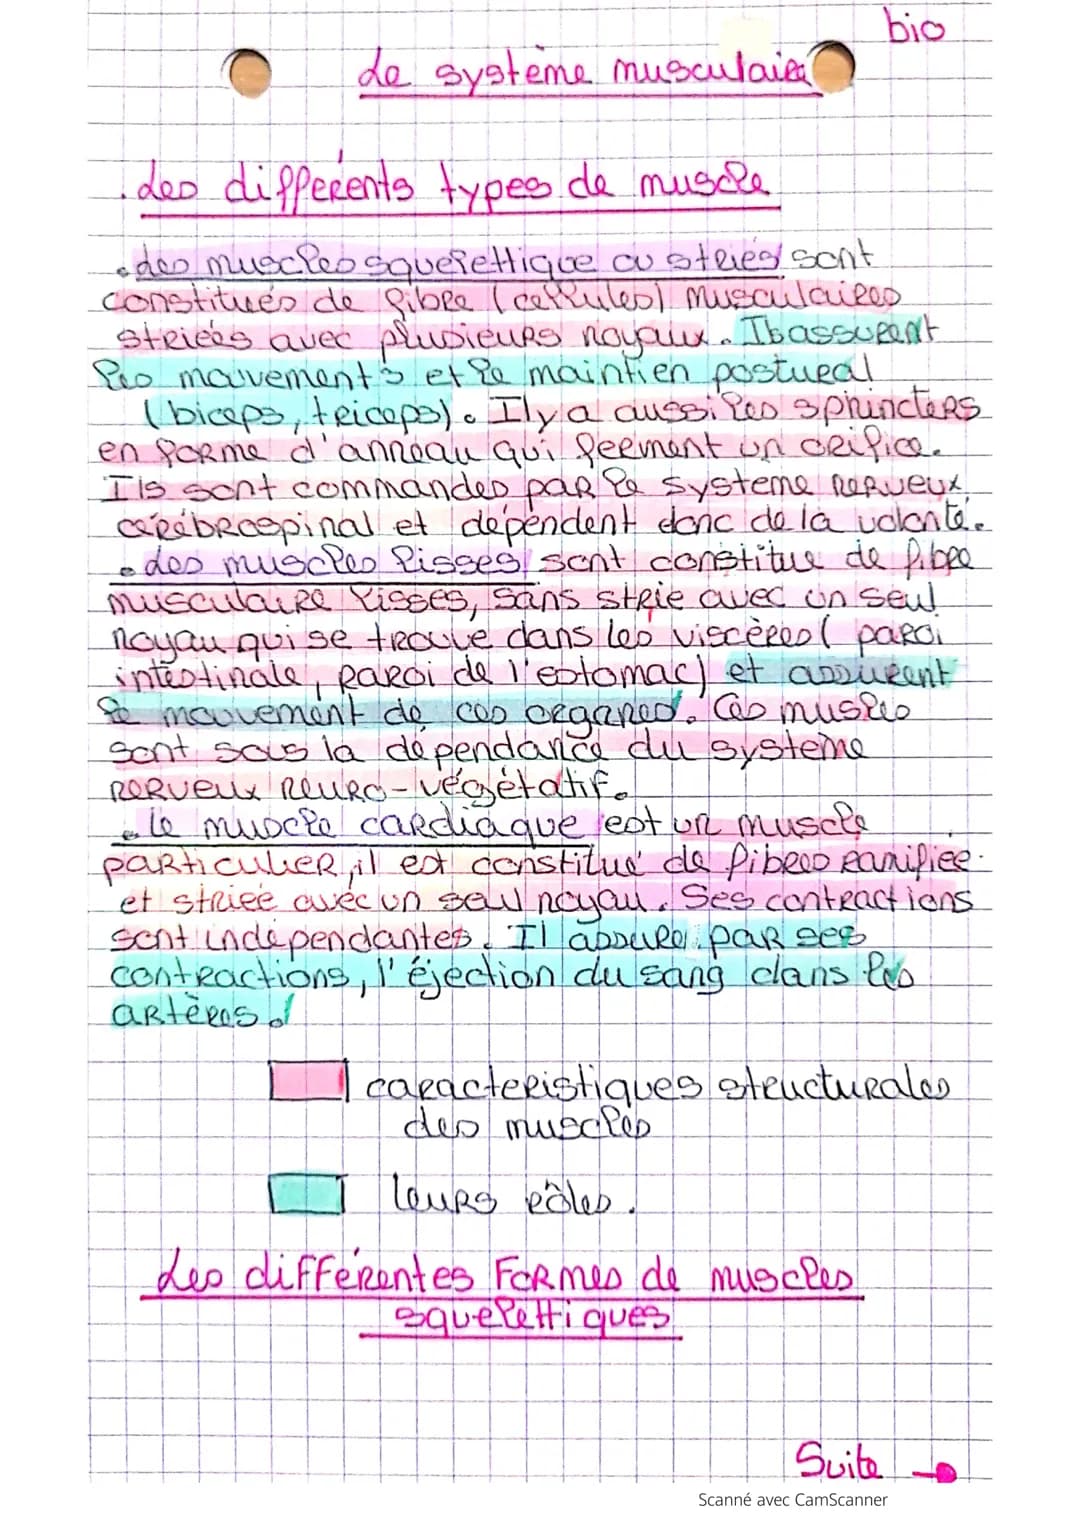 bio
Le système musculaire
. Les différents types de muscle
. Les muscles squelettique ou striés sont
constitués de fibre (cellules) musculaires
striées avec plusieurs noyaux. Ils assurent
les mouvements et le maintien postural
(biceps, triceps). Il y a aussi les sphincters
en forme d'anneau qui ferment un orifice.
Ils sont commandes par le systeme nerveux
cérébrospinal et dépendent donc de la volonté.
. Les muscles lisses sont constitue de fibre
musculaire lisses, sans strie avec un seul
noyau qui se trouve dans les viscères (paroi
intestinale, paroi de l'estomac) et assurent
le mouvement de ces organes. Ces muscles
sont sous la dépendance du système
nerveux neuro-végétatif.
. Le muscle cardiaque est un muscle
particulier, il est constitué de fibres ramifiée
et striée avec un seul noyau. Ses contractions
sont indépendantes. Il assure par ses
contractions, l'éjection du sang dans les
artères.
caracteristiques structurales
des muscles
leurs rôles.
Les différentes Formes de muscles
squelettiques
Suite
Scanné avec CamScanner